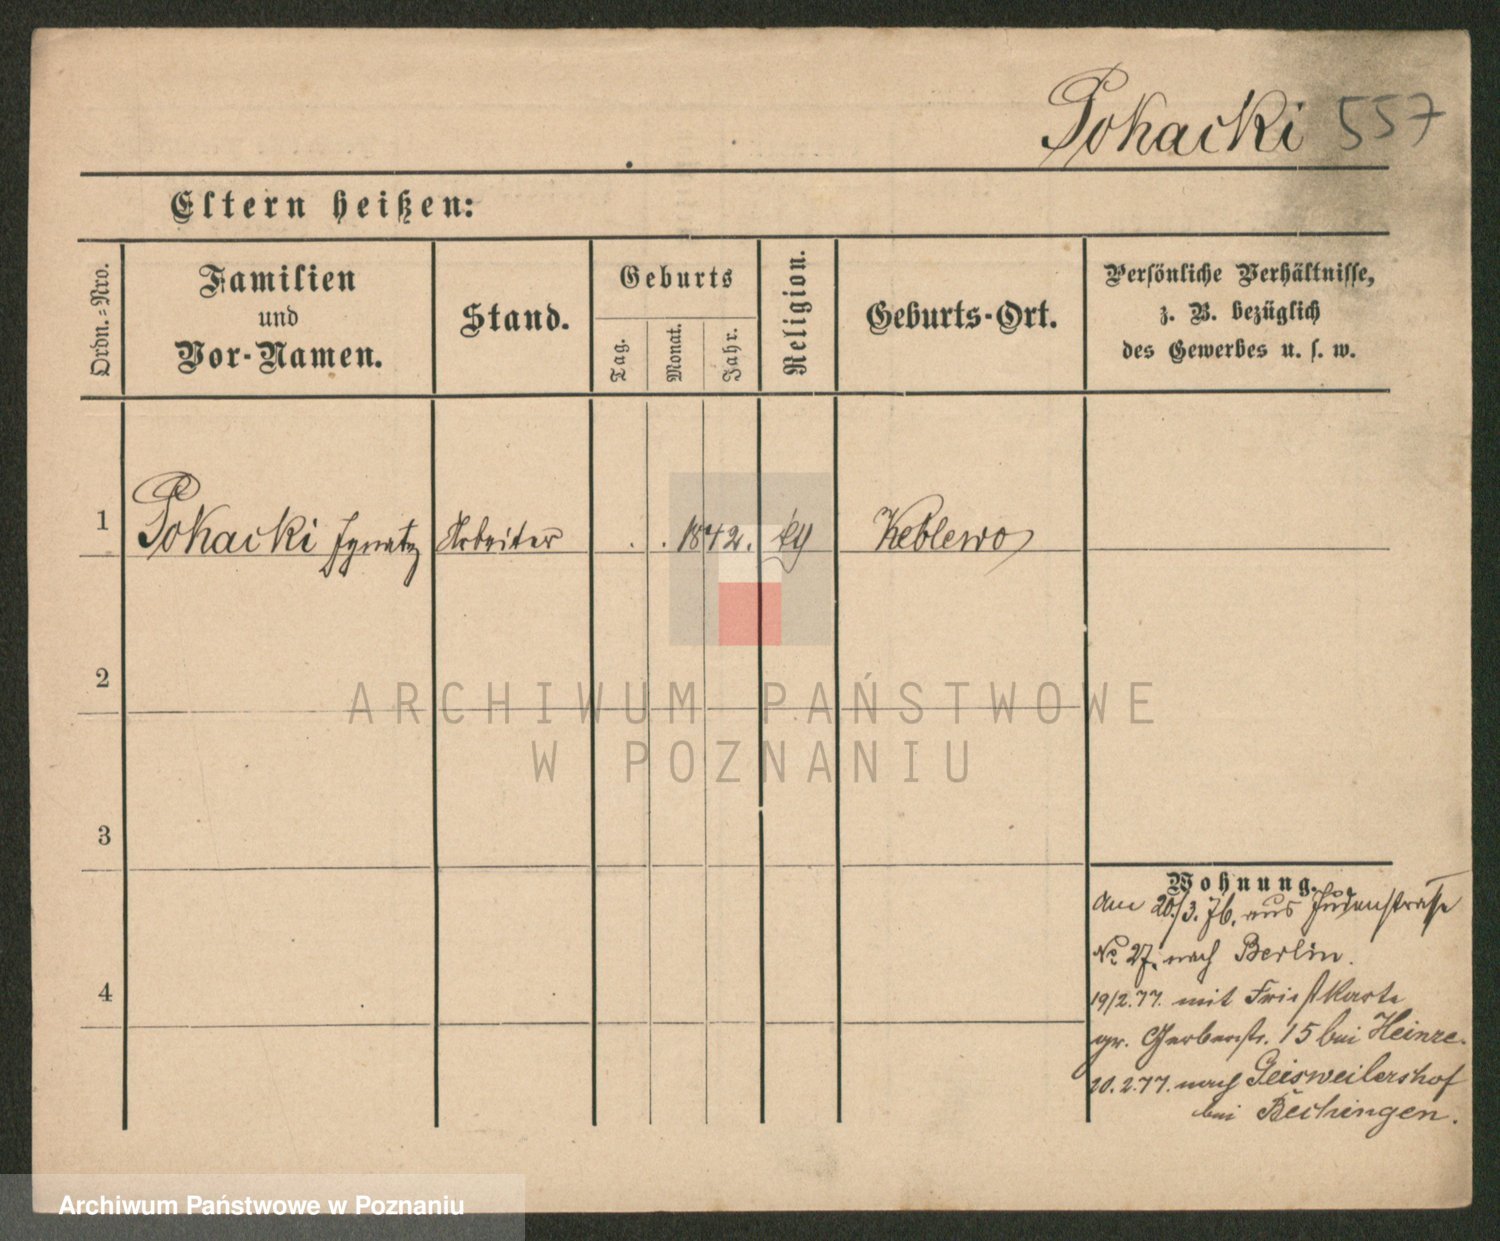 Pokacki 557
Eltern heißen:
Ordn.-Nro.
Familien
und
Vor-Namen.
Stand.
Geburts
Tag.
Monat.
Jahr.
Religion.
Geburts-Ort.
Persönliche Verhältnisse,
z. B. bezüglich
des Gewerbes u. s. w.
1 Pokacki Ignatz Arbeiter . . 1842. Keblewo
2
ARCHIWUM PAŃSTWOWE
W POZNANIU
3
4
Wohnung.
am 20/3. 76. aus Judenstraße
No 27. nach Berlin.
19/2.77. mit
gr. Gerberstr. 15 bei Heinze.
20.2.77. nach Geisweilershof
bei Bechingen.
Archiwum Państwowe w Poznaniu